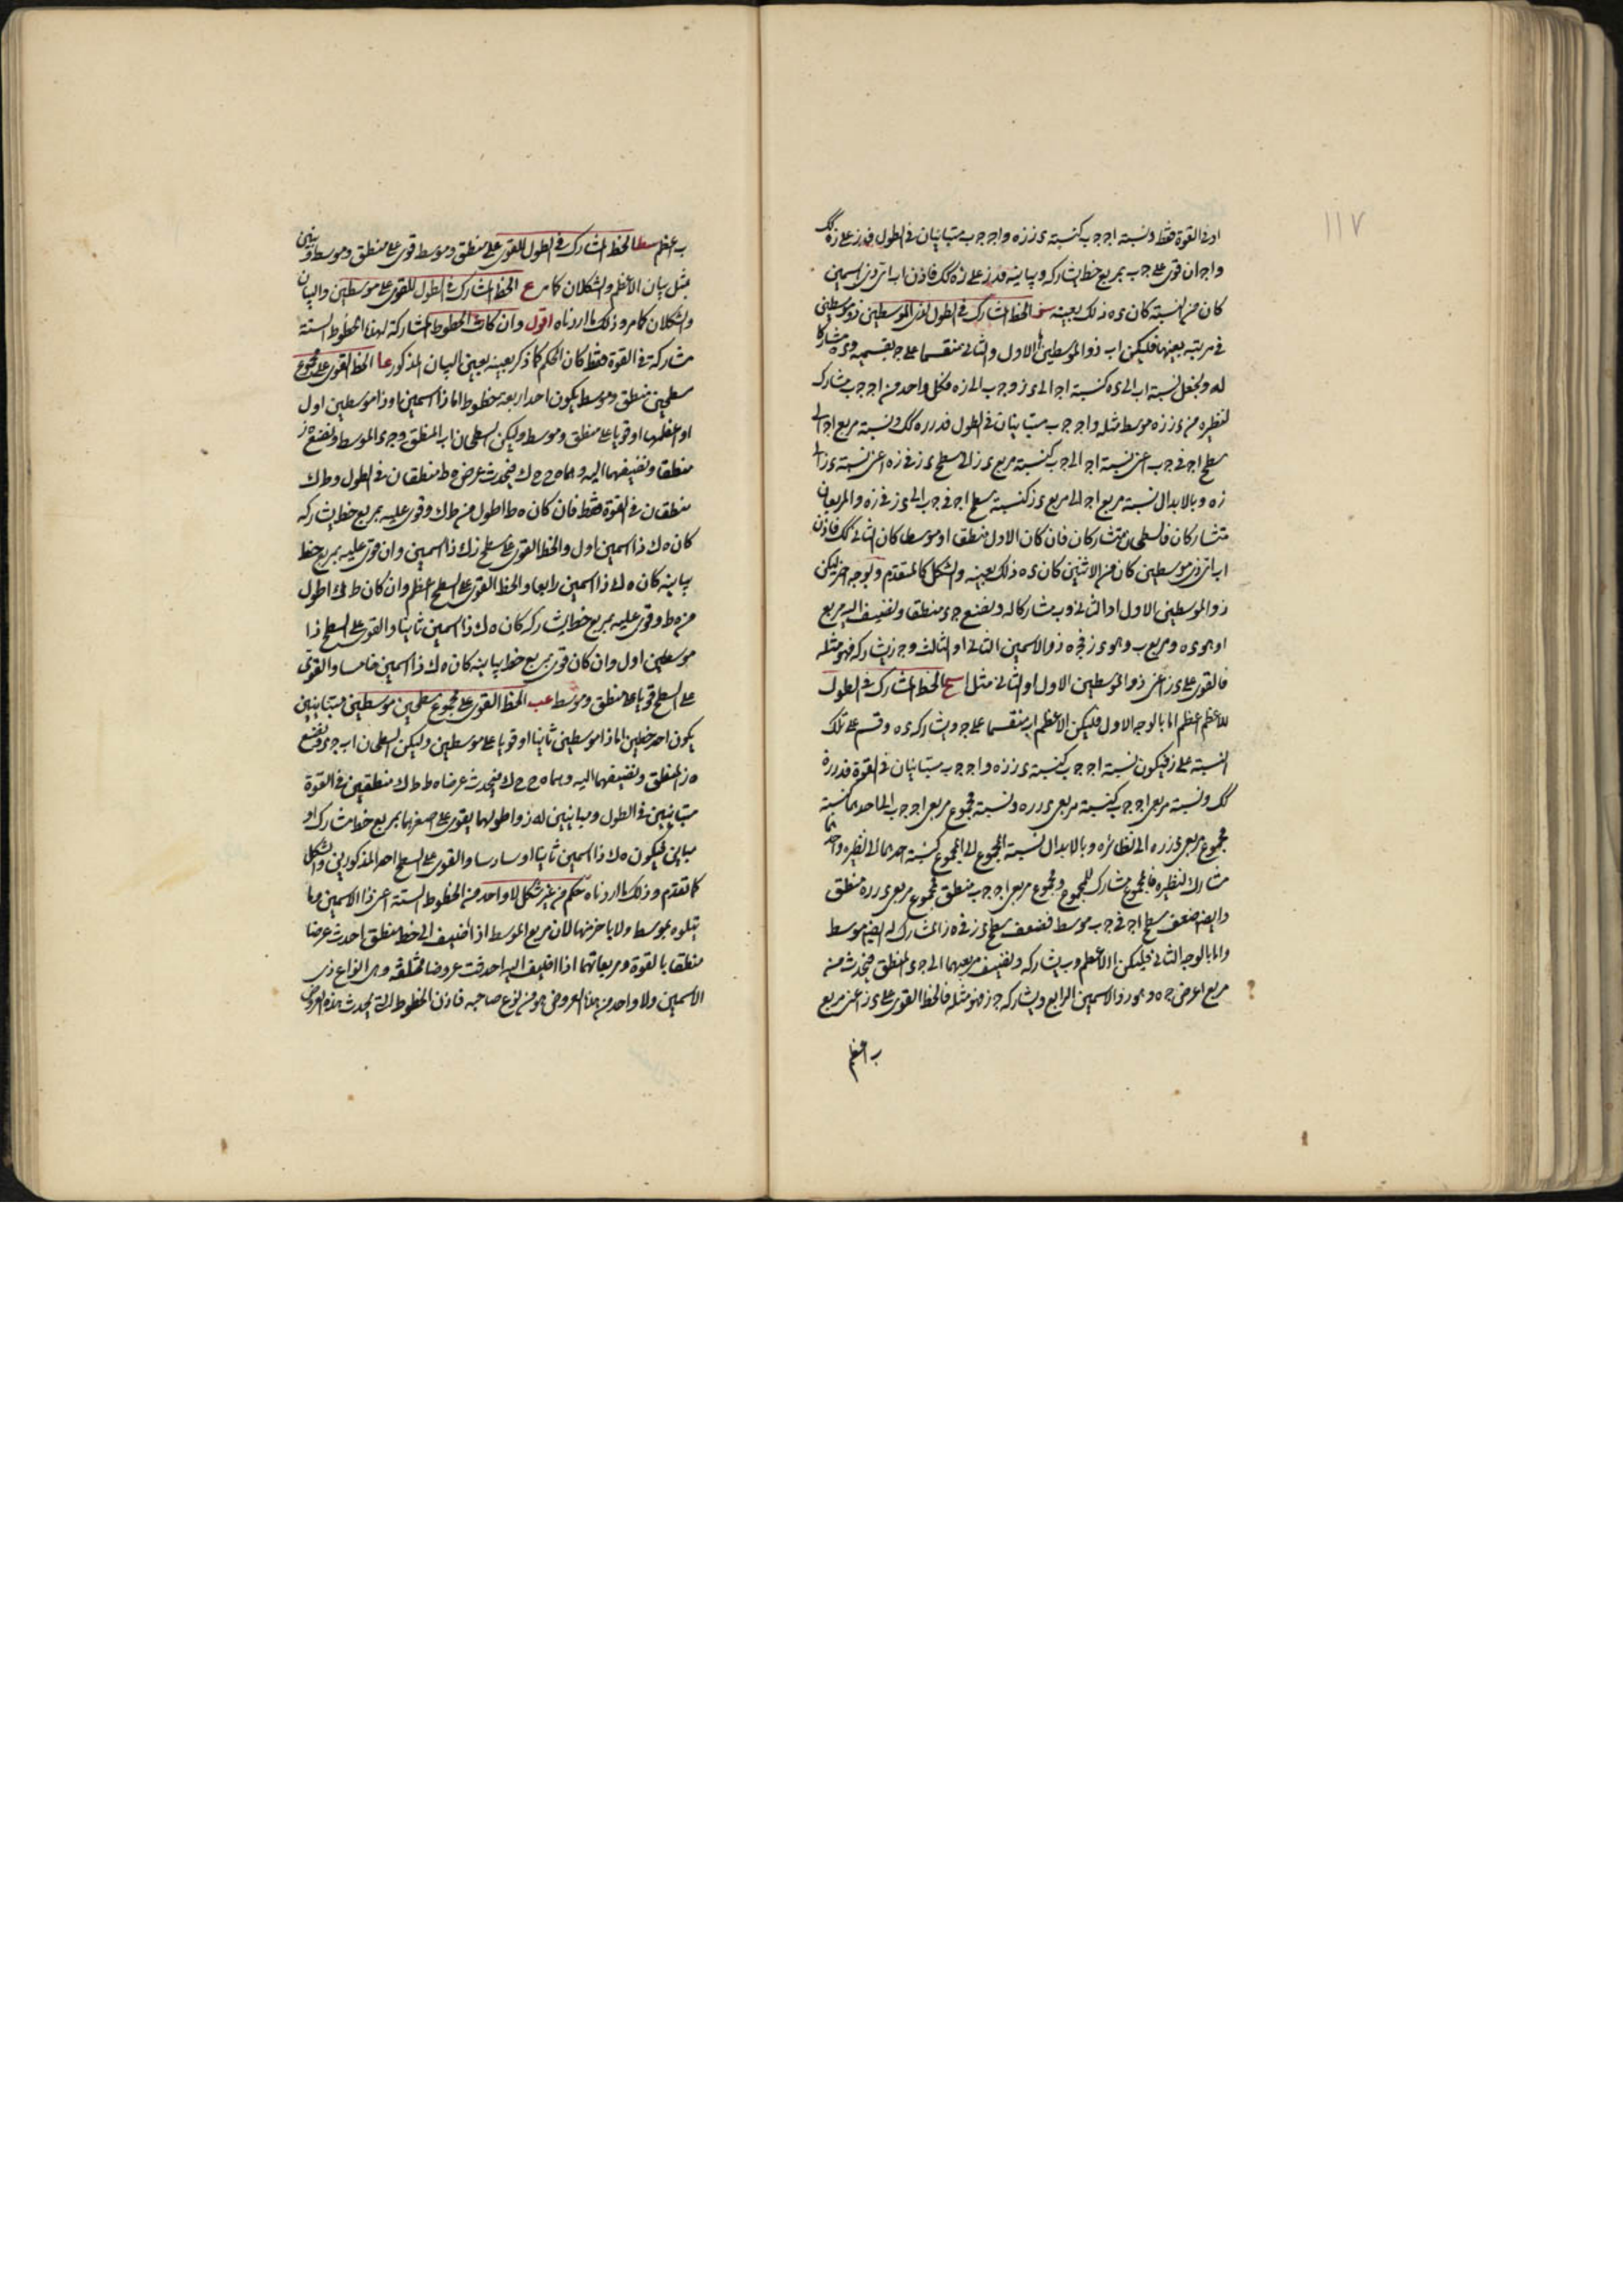 ١١٧
او في القوة فقط ونسبة ا ج ج ب كنسبة ء ز ز ه و ا ج ج ب متباينان في الطول فء ز ز ه كك
و ا ج ان قوى على ج ب بمربع خط يشاركه او يباينه فء ز على ز ه كك فاذن اب اى ذى اسمين
كان من الستة كان ء ه ذلك بعينه سز الخط المشارك في الطول لذى الموسطين ذو موسطين
في مرتبته بعينها فليكن اب ذو الموسطين الاول او الثانى منقسما على ج بقسميه و ء ه مشاركا
له ونجعل نسبة اب الى ء ه كنسبة ا ج الى ء ز و ج ب الى ز ه فكل واحد من ا ج ج ب مشارك
لنظيره من ء ز ز ه موسط مثله و ا ج ج ب متباينان في الطول فء ز ز ه كك ونسبة مربع ا ج الى
سطح ا ج في ج ب اعنى نسبة ا ج الى ج ب كنسبة مربع ء ز الى سطح ء ز في ز ه اعنى نسبة ء ز الى
ز ه وبالابدال نسبة مربع ا ج الى مربع ء ز كنسبة سطح ا ج في ج ب الى ء ز في ز ه والمربعان
متشاركان فالسطحان متشاركان فان كان الاول منطقا او موسطا كان الثانى كك فاذن
اب اى ذى موسطين كان من الاثنين كان ء ه ذلك بعينه والشكل كالمتقدم وبوجه اخر ليكن
ذو الموسطين الاول او الثانى و ب مشاركا له ونضع ج ء منطقا ونضيف اليه مربع
ا وهو ء ه ومربع ب وهو ء ز فج ه ذو الاسمين الثانى او الثالث و ج ز يشاركه فهو مثله
فالقوى على ء ز اعنى ذو الموسطين الاول او الثانى مثل ا سح الخط المشارك في الطول
للاعظم اعظم اما بالوجه الاول فليكن الاعظم اب منقسما على ج ويشاركه ء ه وقسم على تلك
النسبة على ز فيكون نسبة ا ج ج ب كنسبة ء ز ز ه و ا ج ج ب متباينان في القوة فء ز ز ه
كك ونسبة مربعى ا ج ج ب كنسبة مربعى ء ز ز ه ونسبة مجموع مربعى ا ج ج ب الى احدهما كنسبة
مجموع مربعى ء ز ز ه الى نظائره وبالابدال نسبة المجموع الى المجموع كنسبة احدهما الى نظيره واحدهما
مشارك لنظيره فالمجموع مشارك للمجموع ومجموع مربعى ا ج ج ب منطق فمجموع مربعى ء ز ز ه منطق
وايضا ضعف سطح ا ج في ج ب موسط فضعف سطح ء ز في ه ز المشارك له ايضا موسط
واما بالوجه الثانى فليكن ا الاعظم و ب يشاركه ونضيف مربعيهما الى ج ء المنطق فيحدث من
مربع ا عرض ج ه وهو ذو الاسمين الرابع ويشاركه ج ز فهو مثله فالخط القوى على ء ز اعنى مربع
ب اعظم
ب اعظم سط الخط المشارك في الطول للقوى على منطق وموسط قوى على منطق وموسط ونبين
بمثل بيان الاعظم والشكلان كما مر ع الخط المشارك في الطول للقوى على موسطين والبيان
والشكلان كما مر وذلك ما اردناه اقول وان كانت الخطوط المشاركة لهذه الخطوط الستة
مشاركة في القوة فقط كان الحكم كما ذكر بعينه بعين البيان المذكور عا الخط القوى على مجموع
سطحين منطق وموسط يكون احد اربعة خطوط اما ذا اسمين او ذا موسطين اول
او اعظما او قويا على منطق وموسط وليكن السطحان اب المنطق و ج ء الموسط ونضع ه ز
منطقا ونضيفهما اليه وهما ه ح ح ك فيحدث عرض ه ط منطقان في الطول و ط ك
منطقان في القوة فقط فان كان ه ط اطول من ط ك وقوى عليه بمربع خط يشاركه
كان ه ك ذا اسمين اول والخط القوى على سطح ز ك ذا اسمين وان قوى عليه بمربع خط
يباينه كان ه ك ذا اسمين رابعا والخط القوى على السطح اعظم وان كان ط ك اطول
من ه ط وقوى عليه بمربع خط يشاركه كان ه ك ذا اسمين ثانيا والقوى على السطح ذا
موسطين اول وان كان قوى بمربع خط يباينه كان ه ك ذا اسمين خامسا والقوى
على السطح قويا على منطق وموسط عب الخط القوى على مجموع سطحين موسطين متباينين
يكون احد خطين اما ذا موسطين ثانيا او قويا على موسطين وليكن السطحان اب ج ء ونضع
ه ز المنطق ونضيفهما اليه وهما ه ح ح ك فيحدث عرضا ه ط ط ك منطقين في القوة
متباينين في الطول ومباينين له ز واطولهما يقوى على اصغرهما بمربع خط مشارك او
مباين فيكون ه ك ذا اسمين ثالثا او سادسا والقوى على السطح احد المذكورين والشكل
كما تقدم وذلك ما اردناه حكم من غير شكل لا واحد من الخطوط الستة اعنى ذا الاسمين وما
يتلوه بموسط ولا باخر منها لان مربع الموسط اذا اضيف الى خط منطق احدث عرضا
منطقا بالقوة ومربعاتها اذا اضيف اليه احدثت عروضا مختلفة وهى انواع ذى
الاسمين ولا واحد من هذه العروض هو من نوع صاحبه فاذن الخطوط التى يحدث هذه العروض